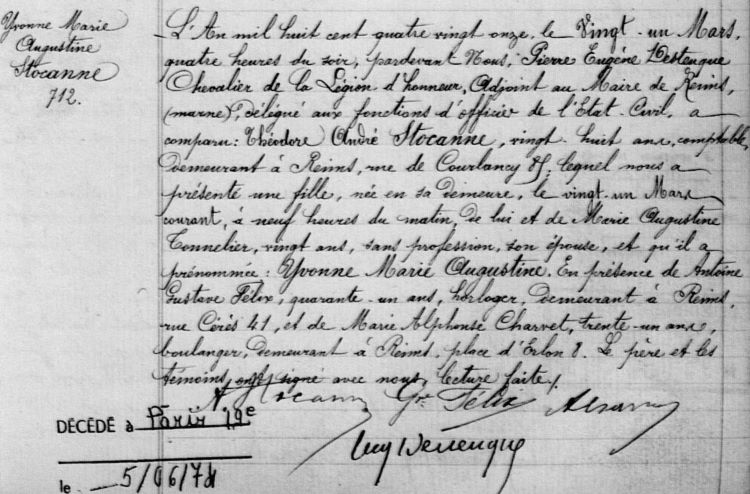 Yvonne Marie
Augustine
Stocanne
712.
L'An mil huit cent quatre vingt onze, le Vingt-un Mars,
quatre heures du soir, pardevant Nous, Pierre Eugène Desteuque
Chevalier de la Légion d'honneur, Adjoint au Maire de Reims,
(marne), délégué aux fonctions d'officier de l'Etat-Civil, a
comparu: Théodore André Stocanne, vingt-huit ans, comptable,
demeurant à Reims, rue de Courlancy lequel nous a
présenté une fille, née en sa demeure, le vingt-un Mars
courant, à neuf heures du matin, de lui et de Marie Augustine
Tonnelier, vingt ans, sans profession, son épouse, et qu'il a
prénommée: Yvonne Marie Augustine. En présence de Antoine
Gustave Félix, quarante-un ans, horloger, demeurant à Reims,
rue Cérès 41, et de Marie Alphonse Charvet, trente-un ans,
boulanger, demeurant à Reims, place d'Erlon 8. Le père et les
témoins ont signé avec nous, lecture faite.
Stocanne Gve Félix
DÉCÉDÉ à Paris 19e
le 5/06/74